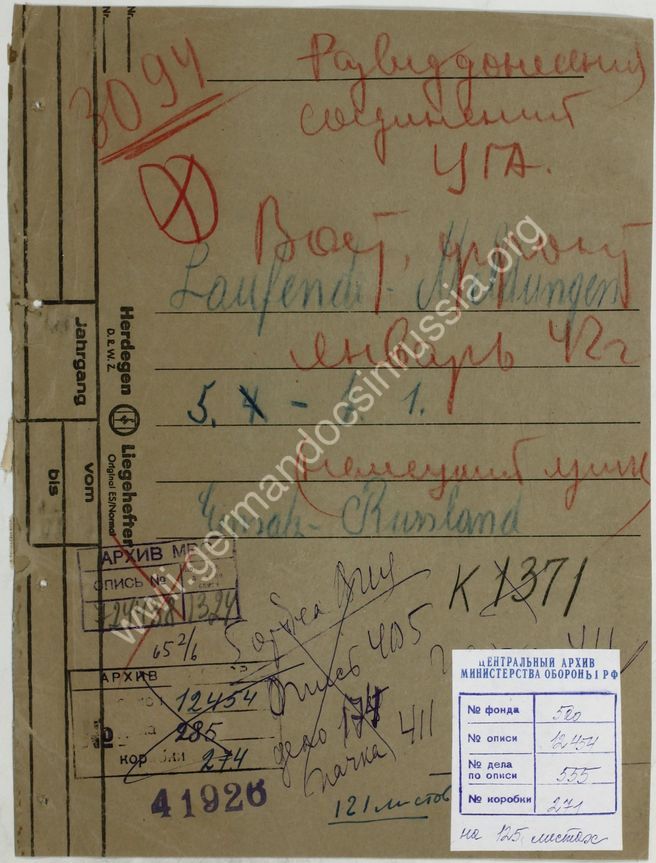 Nr.
Nr.
3094
Развиддонесения
соединений
ЦГА.
Вост. фронт
Laufende - Meldungen
январь 42 г
5. - 1.
Немецкий язык
Einsatz - Russland
Jahrgang
vom
bis
Herdegen
D. R. W. Z.
Liegehefter
Original ES/Normal
www.germandocsinrussia.org
АРХИВ
опись №
1324
65 2/6
К 1371
опись 405
дело 174
пачка 411
АРХИВ
12454
285
коробки 274
41926
121 листов
ЦЕНТРАЛЬНЫЙ АРХИВ
МИНИСТЕРСТВА ОБОРОНЫ РФ
№ фонда 500
№ описи 12454
№ дела по описи 555
№ коробки 271
на 125 листах